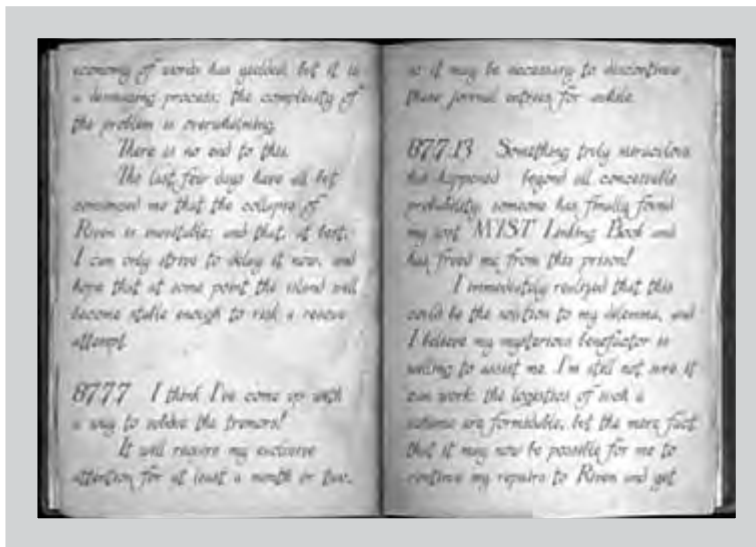 economy of words has yielded, but it is
a demanding process; the complexity of
the problem is overwhelming.
There is no end to this.
The last few days have all but
convinced me that the collapse of
Riven is inevitable; and that, at best,
I can only strive to delay it now, and
hope that at some point the island will
become stable enough to risk a rescue
attempt.
87.7.7 I think I've come up with
a way to subdue the tremors!
It will require my exclusive
attention for at least a month or two,
so it may be necessary to discontinue
these journal entries for awhile.
87.7.13 Something truly miraculous
has happened beyond all conceivable
probability, someone has finally found
my lost MYST Linking Book and
has freed me from this prison!
I immediately realized that this
could be the solution to my dilemma, and
I believe my mysterious benefactor is
willing to assist me. I'm still not sure it
can work: the logistics of such a
scheme are formidable, but the mere fact
that it may now be possible for me to
continue my repairs to Riven and get